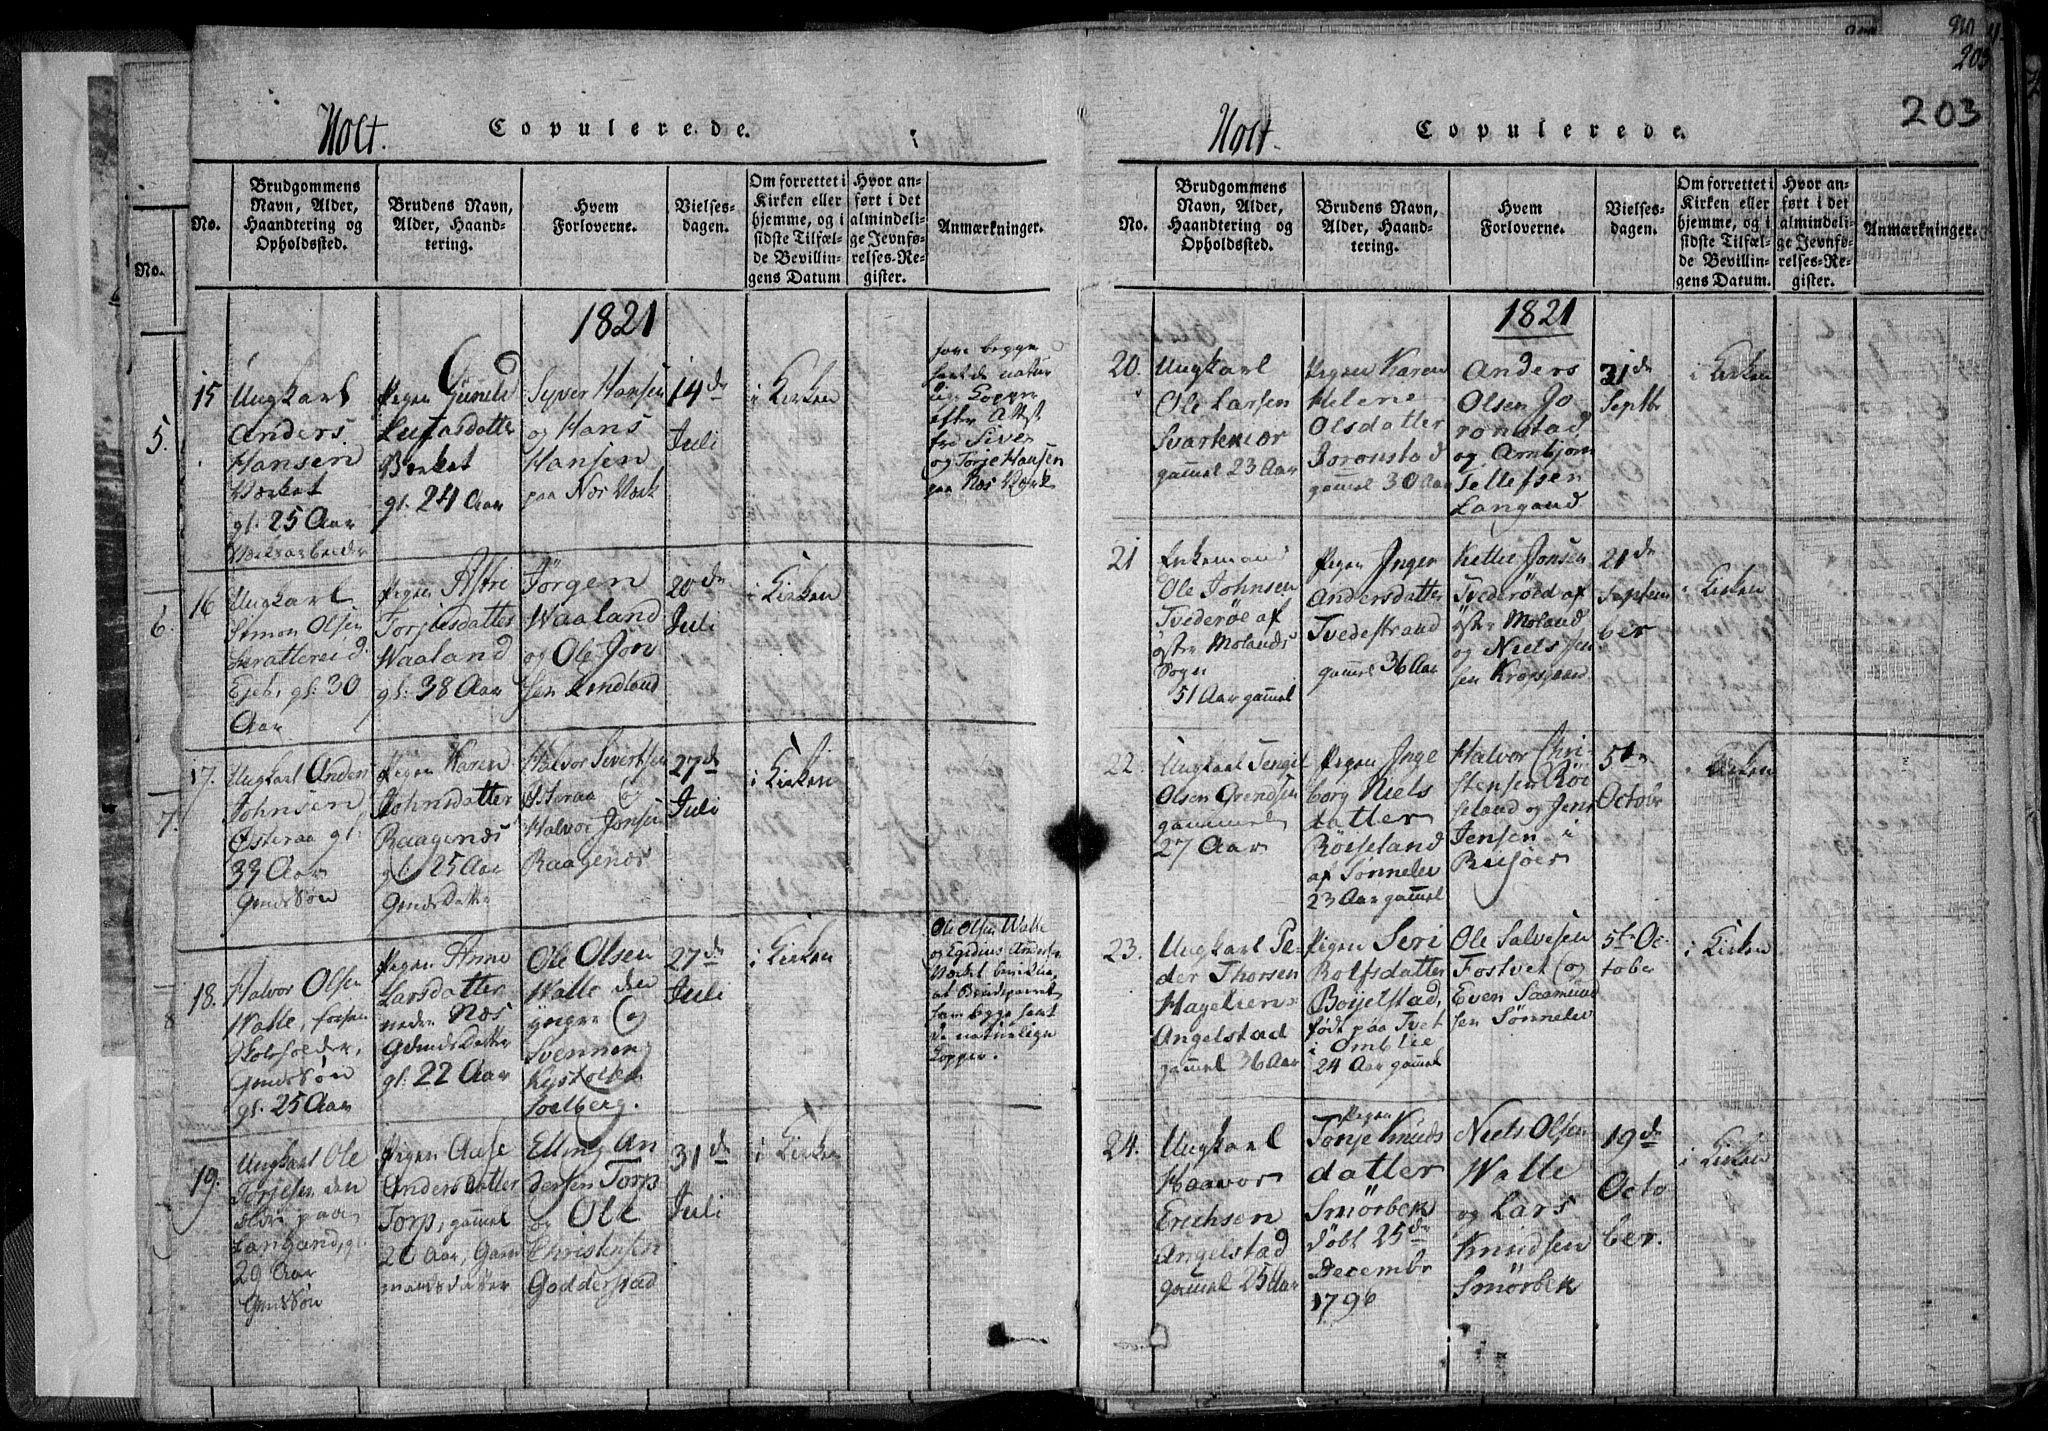 Holt. Copulerede.
No.
Brudgommens
Navn, Alder,
Haandtering og
Opholdssted.
Brudens Navn,
Alder, Haand-
tering.
Hvem
Forloverne.
Vielses-
dagen.
Om forrettet i
Kirken eller
hjemme, og i
sidste Tilfæl-
de Bevillin-
gens Datum
Hvor an-
ført i det
almindeli-
ge Jevnfø-
relses-Re-
gister.
Anmærkninger.
1821
15
Ungkarl
Anders
Hansen
Værket
gl. 25 Aar
Værksarbeider
Pigen Gunild
Værket
gl. 24 Aar
Syver Hansen
og Hans
Hansen
paa Næs Værk
14de
Juli
i Kirken
have begge
havt de natur
lige Kopper
efter Attest
fra Siver
og Torje Hansen
paa Næs Værk
16
Ungkarl
Simon Olsen
Ejet, gl: 30
Aar
Pigen Astre
Torjusdatter
Waaland
gl: 38 Aar
Jörgen
Waaland
og Ole Jon
sen Lindland
20de
Juli
i Kirken
17.
Ungkarl Anders
Johnsen
Østeraa gl.
33 Aar
Gmds Søn
Pigen Karen
Johnsdatter
Raagenæs
gl. 25 Aar
Gmds Datter
Halvor Sivertsen
Østeraa og
Halvor Jonsen
Raagenæs
27de
Juli
i Kirken
18.
Halvor Olsen
Walle,
Gmds Søn
gl. 25 Aar
Pigen Anne
Larsdatter
nedre Næs
Gmds Datter
gl. 22 Aar
Ole Olsen
Walle den
yngre og
Svennung
Solberg.
27de
Juli
i Kirken
Ole Olsen Walle
og Egidius Anders.
Værket bevidne,
at Brudeparret
have begge havt
de naturlige
Kopper.
19.
Ungkarl Ole
Torjesen den
ældre paa
Langand, gl.
29 Aar
Gmds Søn
Pigen Aase
Andersdatter
Torp, gammel
Aar, Gaard
mandsdatter
Elling An
dersen Torp
og Ole
Christensen
Godderstad
31de
Juli
i Kirken
5.
6.
7.
8
203
Holt. Copulerede.
203
No.
Brudgommens
Navn, Alder,
Haandtering og
Opholdssted.
Brudens Navn,
Alder, Haand-
tering.
Hvem
Forloverne.
Vielses-
dagen.
Om forrettet i
Kirken eller
hjemme, og i
sidste Tilfæl-
de Bevillin-
gens Datum.
Hvor an-
ført i det
almindeli-
ge Jevnfø-
relses-Re-
gister.
Anmærkninger.
1821
20.
Ungkarl
Ole Larsen
Svartemoer
gamel 23 Aar
Pigen Karen
Helene
Olsdatter
Joronstad
gamel 30 Aar
Anders
Olsen Jo
ronstad
og Arnbjorn
Tellefsen
Langand
31de
Septbr
i Kirken
21
Enkemand
Ole Johnsen
Tvederöe af
östre Molands
Sogn
51 Aar gamel
Pigen Inger
Andersdatter
Tvedestrand
gamel 36 Aar
Kittel Jonsen
Tvederöed af
östre Moland
og Niels Jen
sen
21de
Septem
ber
i Kirken
22.
Ungkarl Tengil
Olsen Grendsen
gammel
27 Aar
Pigen Inge
borg Niels
datter
Röiseland
af Sønneløv
23 Aar gamel
Halvor Chri
stensen Röi
seland og Jens
Jensen i
Riisöer
5te
Octobr
i Kirken
23.
Ungkarl Pe-
der Thorsen
Hagelien-
Angelstad
gamel 36 Aar
Pigen Seri
Rolfsdatter
Bosjelstad,
født paa Tvet
i Omblie
24 Aar gamel
Ole Salvesen
Fostvet og
Even Saamund
sen Sønneløv
5te Oc-
tober
i Kirken
24.
Ungkarl
Haavor
Erichsen
Angelstad
gamel 25 Aar
Pigen
Tonje Knuds
datter
Smörbek
döbt 25de
Decembr
1796
Niels Olsen
Walle
og Lars
Knudsen
Smörbek
19de
Octo
ber.
i Kirken